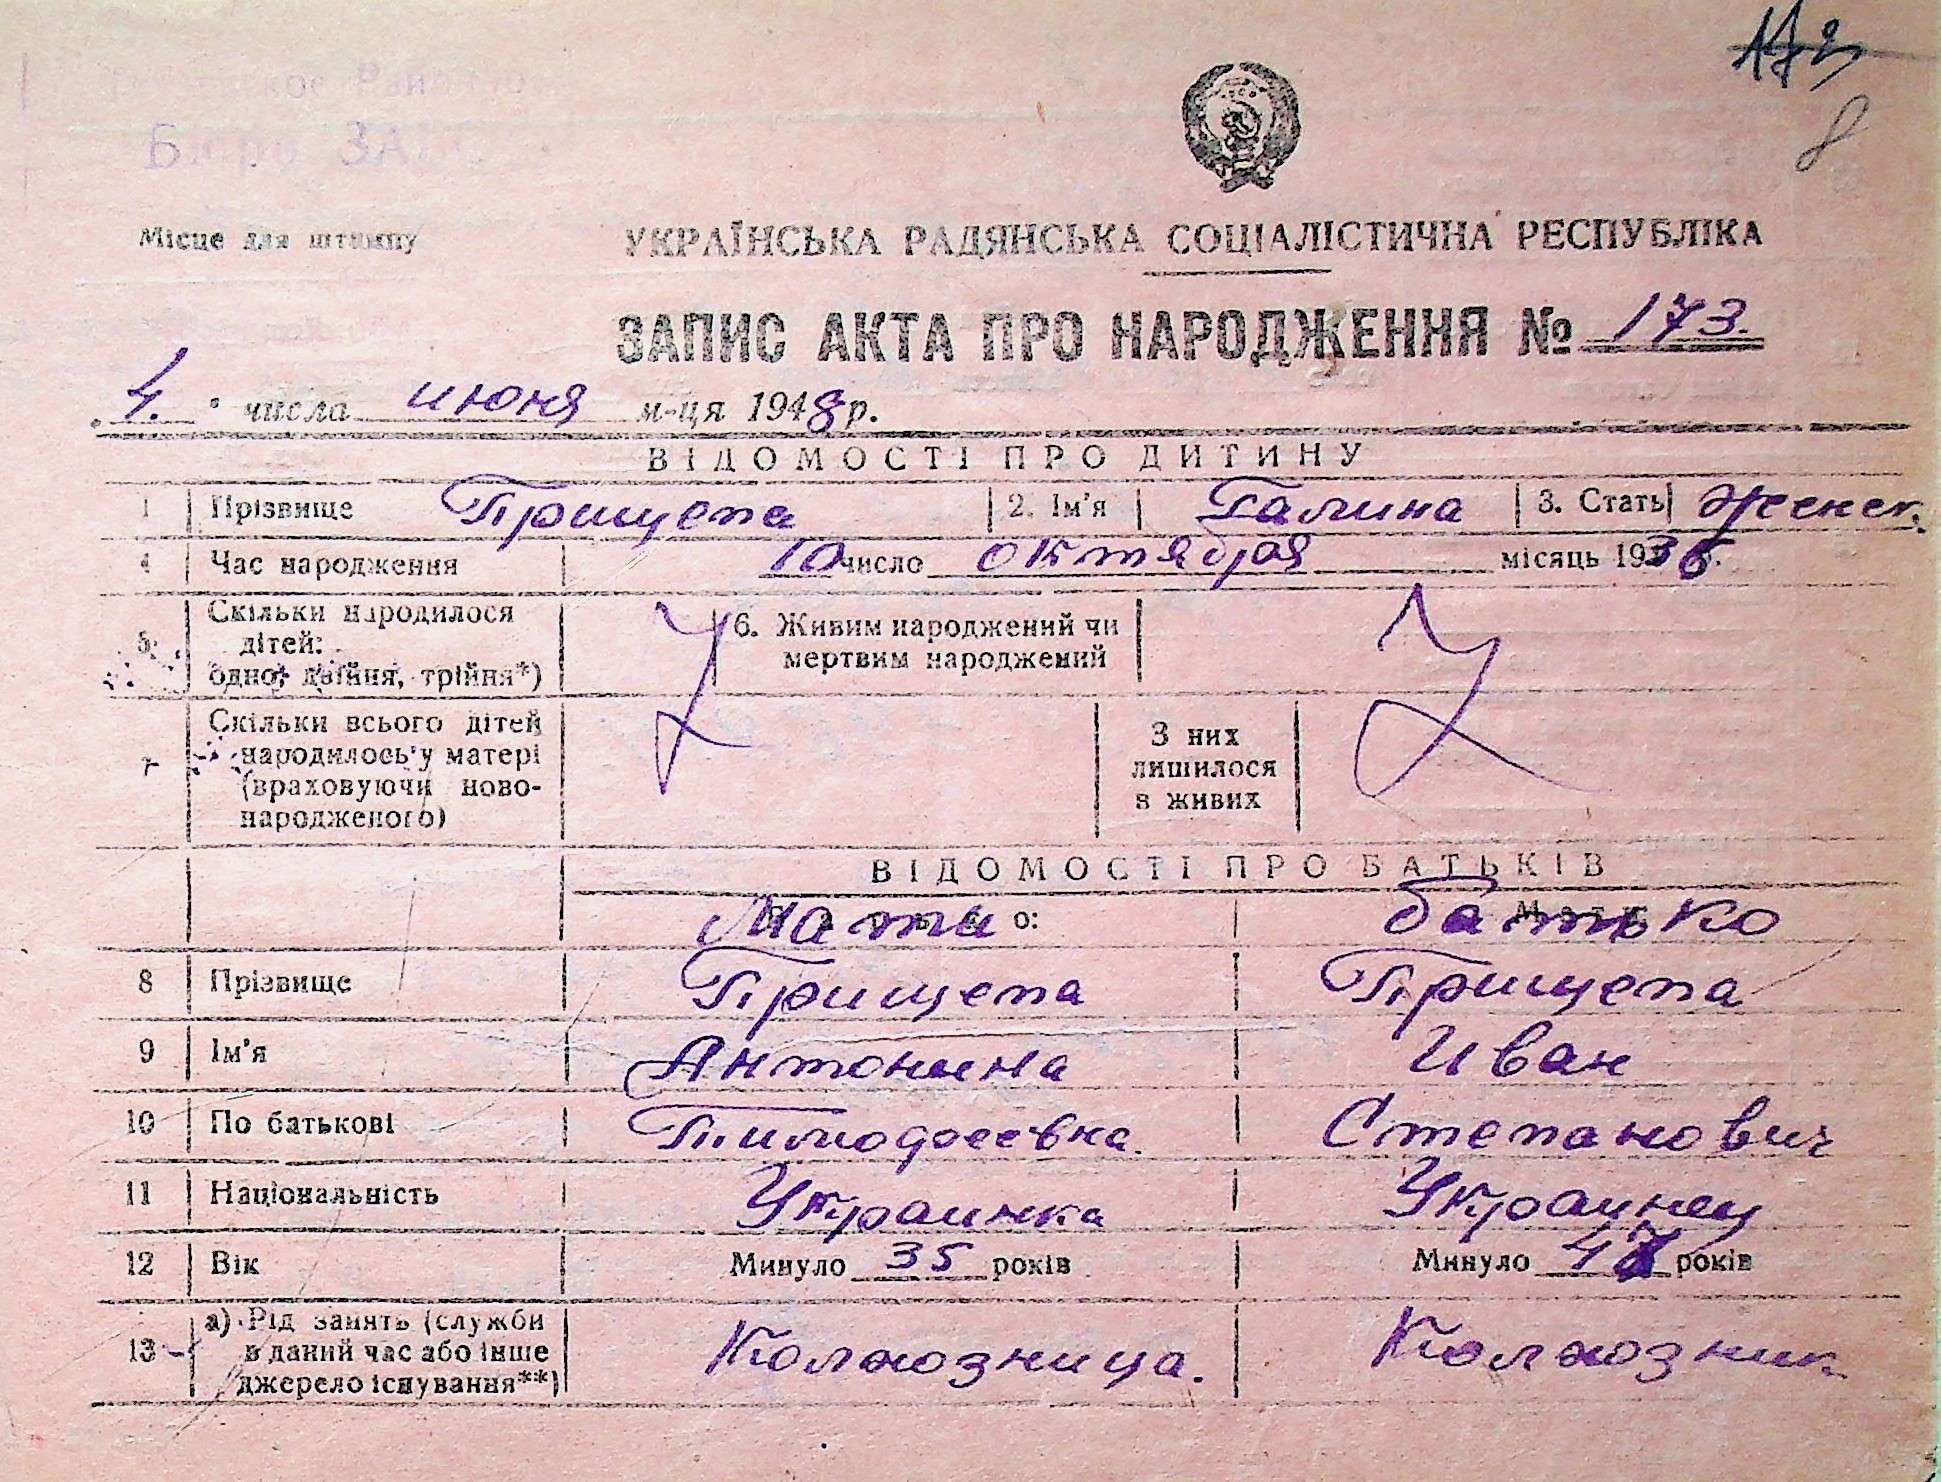 173
8
Бюро ЗАГС
Місце для штампу
УКРАЇНСЬКА РАДЯНСЬКА СОЦІАЛІСТИЧНА РЕСПУБЛІКА
ЗАПИС АКТА ПРО НАРОДЖЕННЯ № 173.
4. числа июня м-ця 1948 р.
ВІДОМОСТІ ПРО ДИТИНУ
1 Прізвище Прищепа 2. Ім'я Галина 3. Стать женск.
4 Час народження 10 число октября місяць 1936
5. Скільки народилося дітей: одно, двійня, трійня*) 6. Живим народжений чи мертвим народжений
7 Скільки всього дітей народилось у матері (враховуючи ново-народженого) З них лишилося в живих
ВІДОМОСТІ ПРО БАТЬКІВ
Мати батько
8 Прізвище Прищепа Прищепа
9 Ім'я Антонина Иван
10 По батькові Тимофеевна. Степанович
11 Національність Украинка Украинец
12 Вік Минуло 35 років Минуло 47 років
13 а) Рід занять (служби в даний час або інше джерело існування**) Колхозница. Колхозник